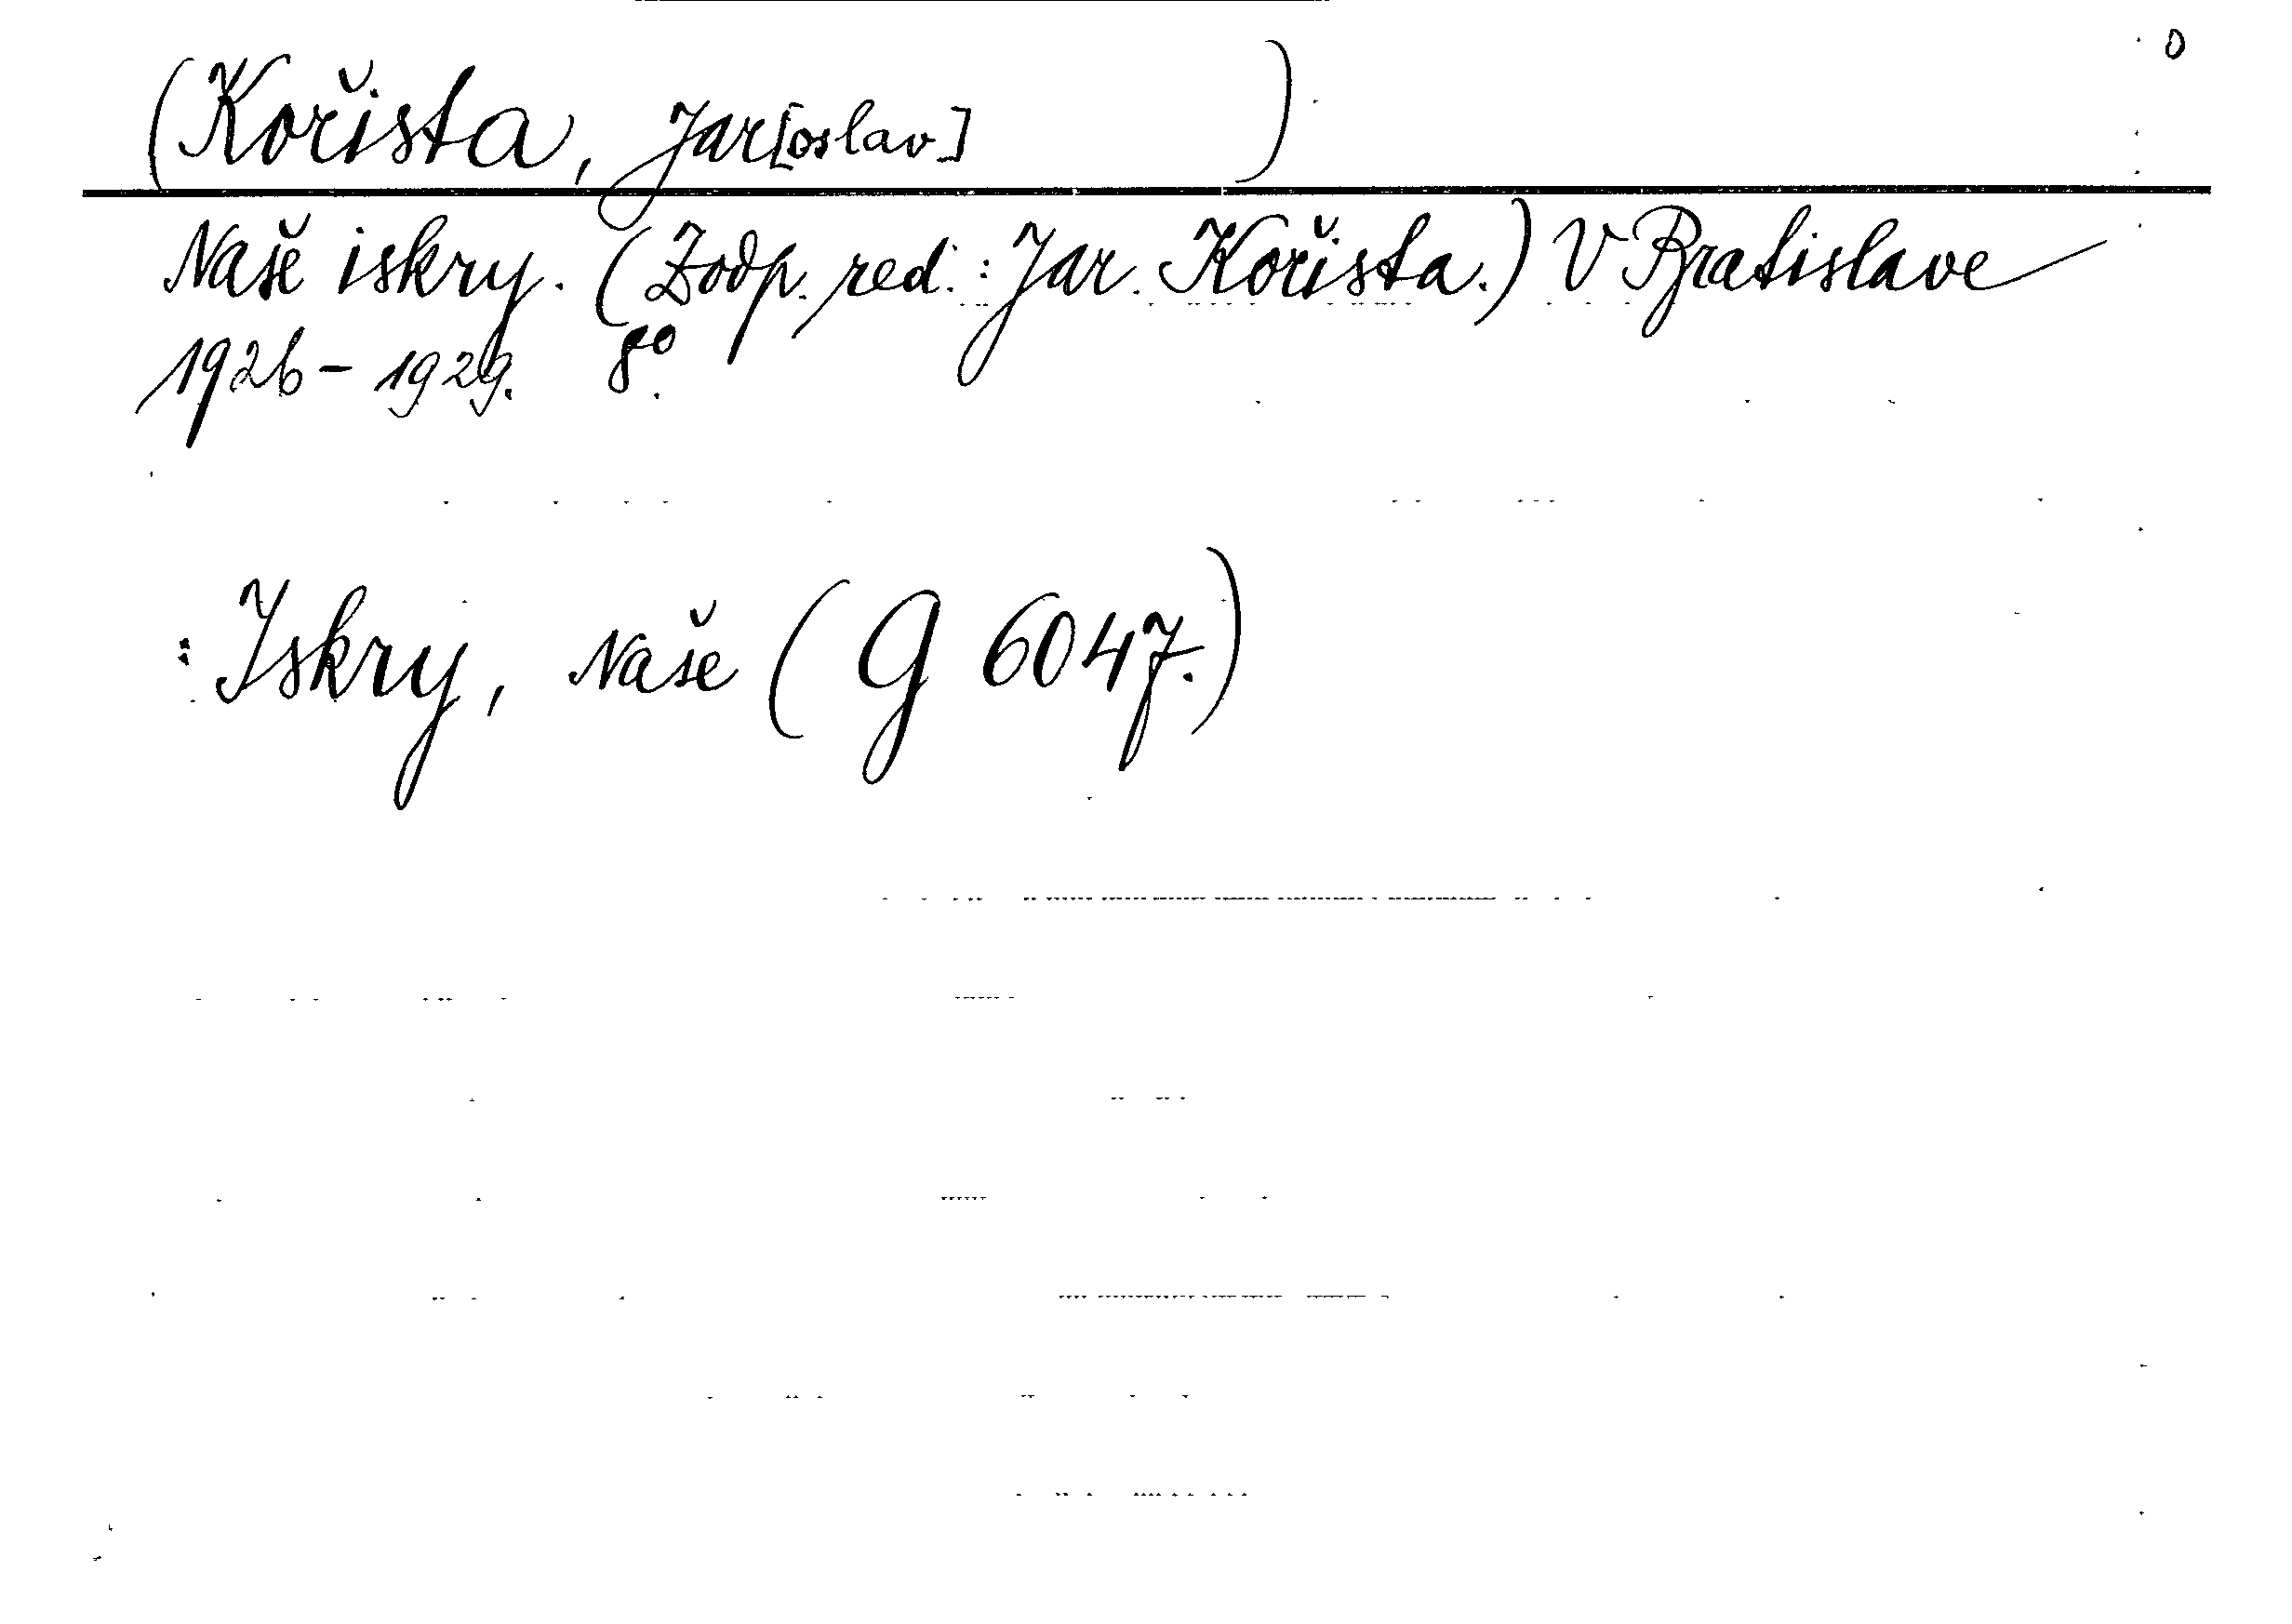 0
(Kořista, Jar[oslav] )
Naše iskry. (Zodp. red.: Jar. Kořista.) V Bratislave
1926-1929. 8°.
: Iskry, Naše (G 6047.)